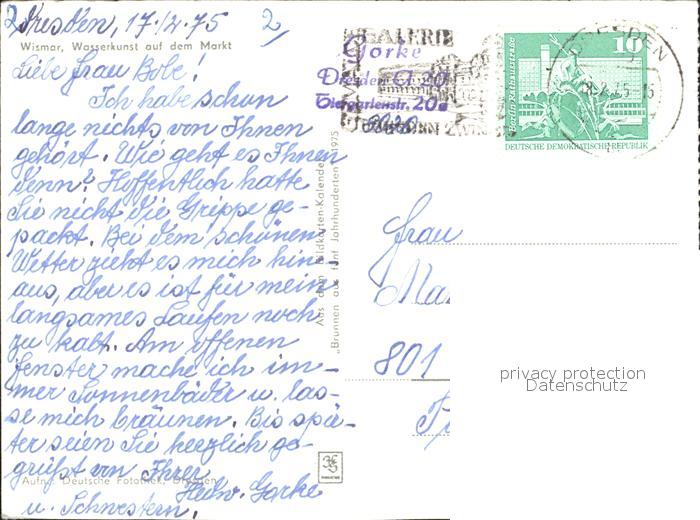 Dresden, 17./2.75
2,
Wismar, Wasserkunst auf dem Markt
Liebe Frau Bobe!
Ich habe schon
lange nichts von Ihnen
gehört. Wie geht es Ihnen
denn? Hoffentlich hatte
Sie nicht die Grippe ge-
packt. Bei dem schönen
Wetter zieht es mich hin-
aus, aber es ist für mein
langsames Laufen noch
zu kalt. Am offenen
Fenster mache ich im-
mer Sonnenbäder u. las-
se mich bräunen. Bis spä-
ter seien Sie herzlich ge-
grüßt von Ihrer
Hedw. Gorke
u. Schwestern.
Aufn.: Deutsche Fotothek, Dresden
Aus dem Bildkarten-Kalender 1975
„Brunnen aus fünf Jahrhunderten"
GALERIE
Gorke
Dresden A 20
Tiergartenstr. 20
8020
ZWINGER
Berlin, Rathausstraße
10
DEUTSCHE DEMOKRATISCHE REPUBLIK
DRESDEN
Frau
801
privacy protection
Datenschutz